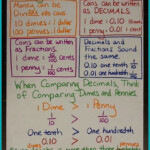 Money can be
Divided into cents
10 dimes = 1 dollar
100 pennies = 1 dollar
Coins can be written
as DECIMALS
1 dime = 0.10
1 penny = 0.01
Coins can be written
as Fractions.
1 dime = 1/10
1 penny = 1/100 cents
Decimals and
fractions Sound
the same.
0.10 One tenth
0.01 One hundredth
When Comparing Decimals, Think
of Comparing Dimes and Pennies
1 Dime > 1 Penny
1/10 1/100
One tenth > One hundredth
0.10 > 0.01